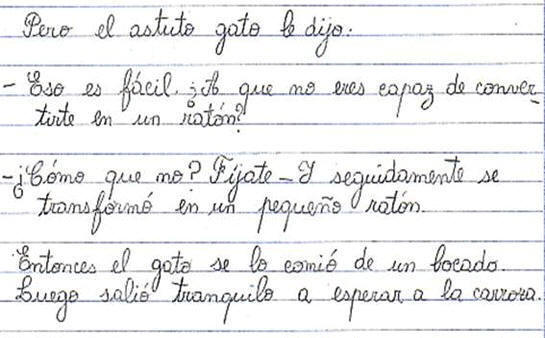 Pero el astuto gato le dijo:
- Eso es fácil. ¿A que no eres capaz de conver-
tirte en un ratón?
- ¿Cómo que no? Fíjate - Y seguidamente se
transformó en un pequeño ratón.
Entonces el gato se lo comió de un bocado.
Luego salió tranquilo a esperar a la carroza.